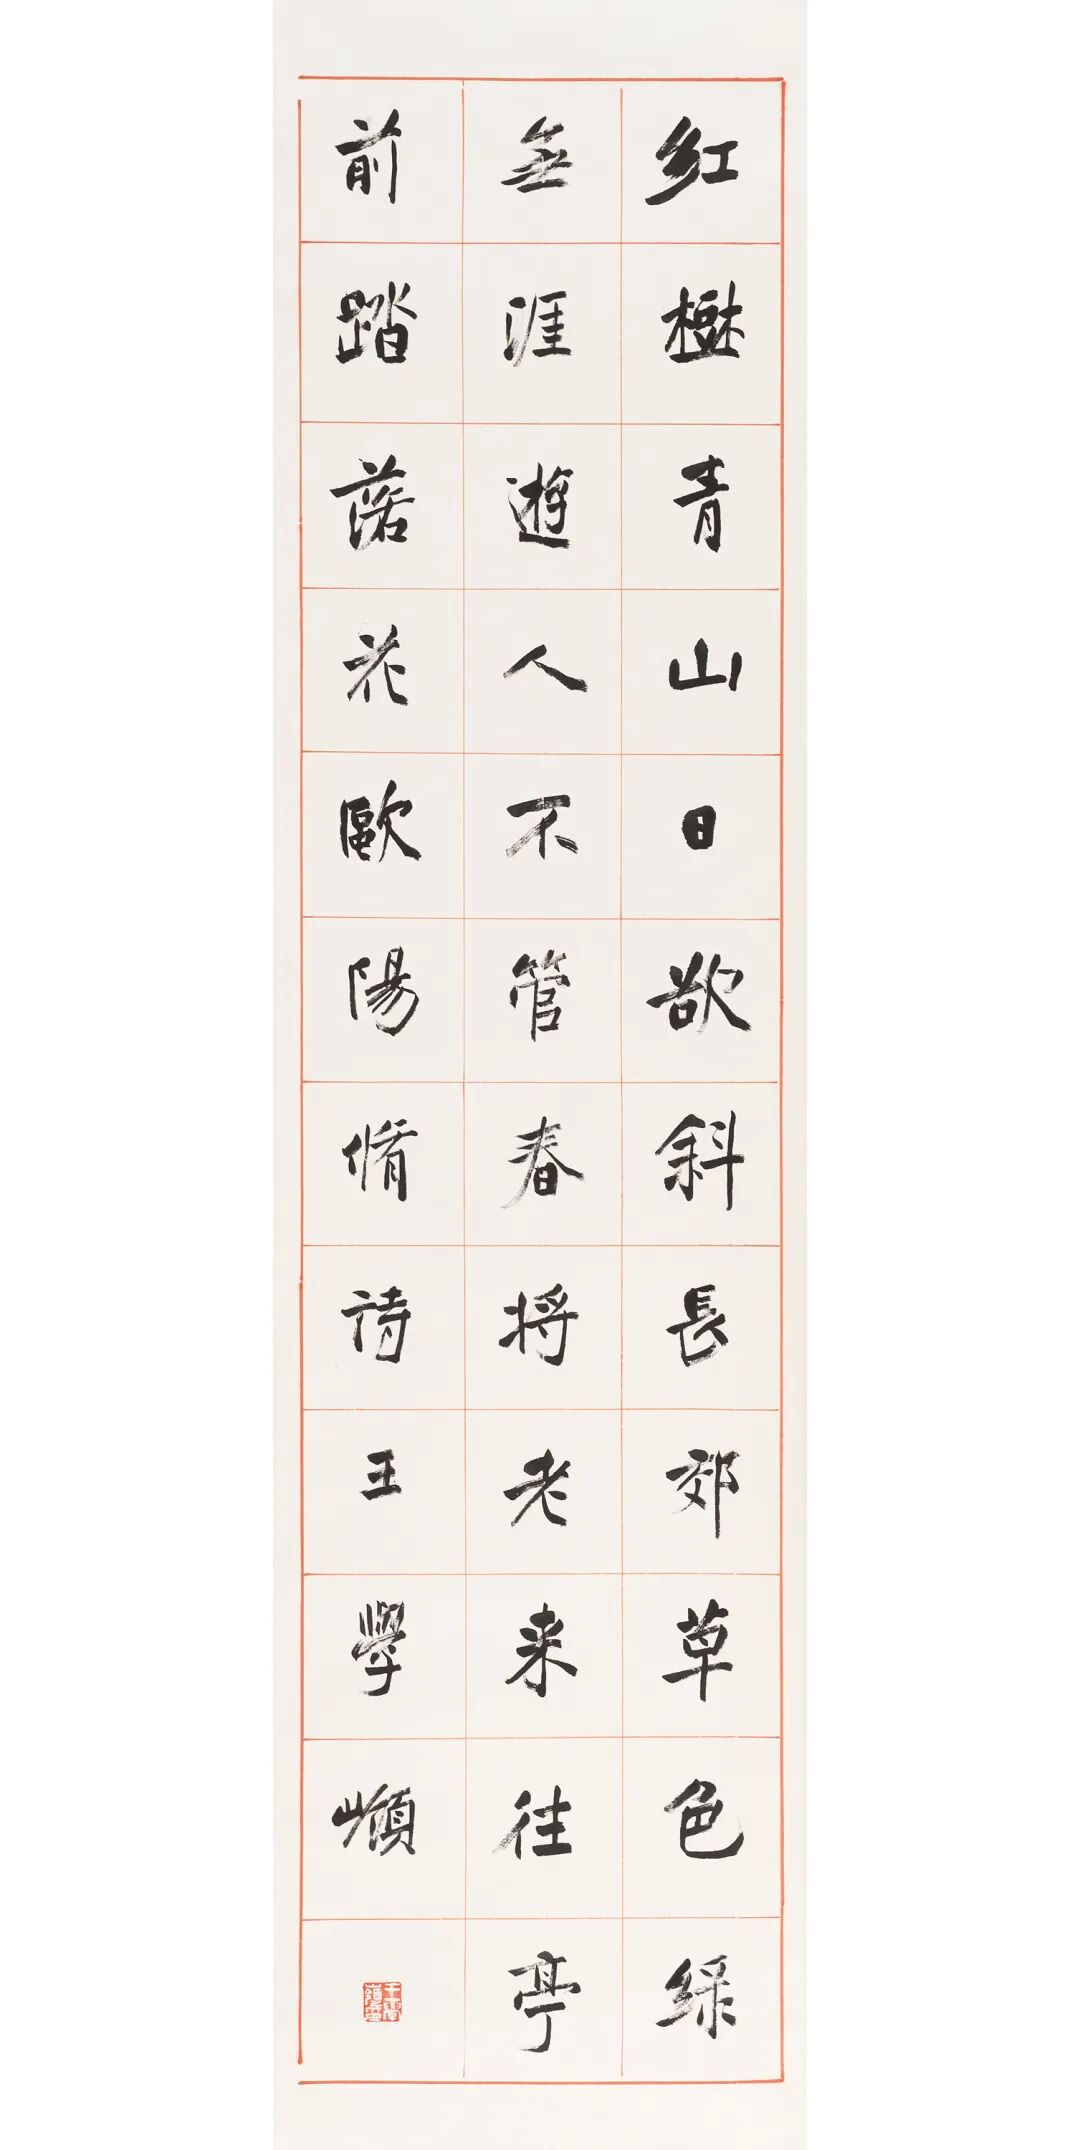 红樹青山日欲斜長郊草色绿
無涯遊人不管春将老来往亭
前踏落花歐陽脩詩王學嶺